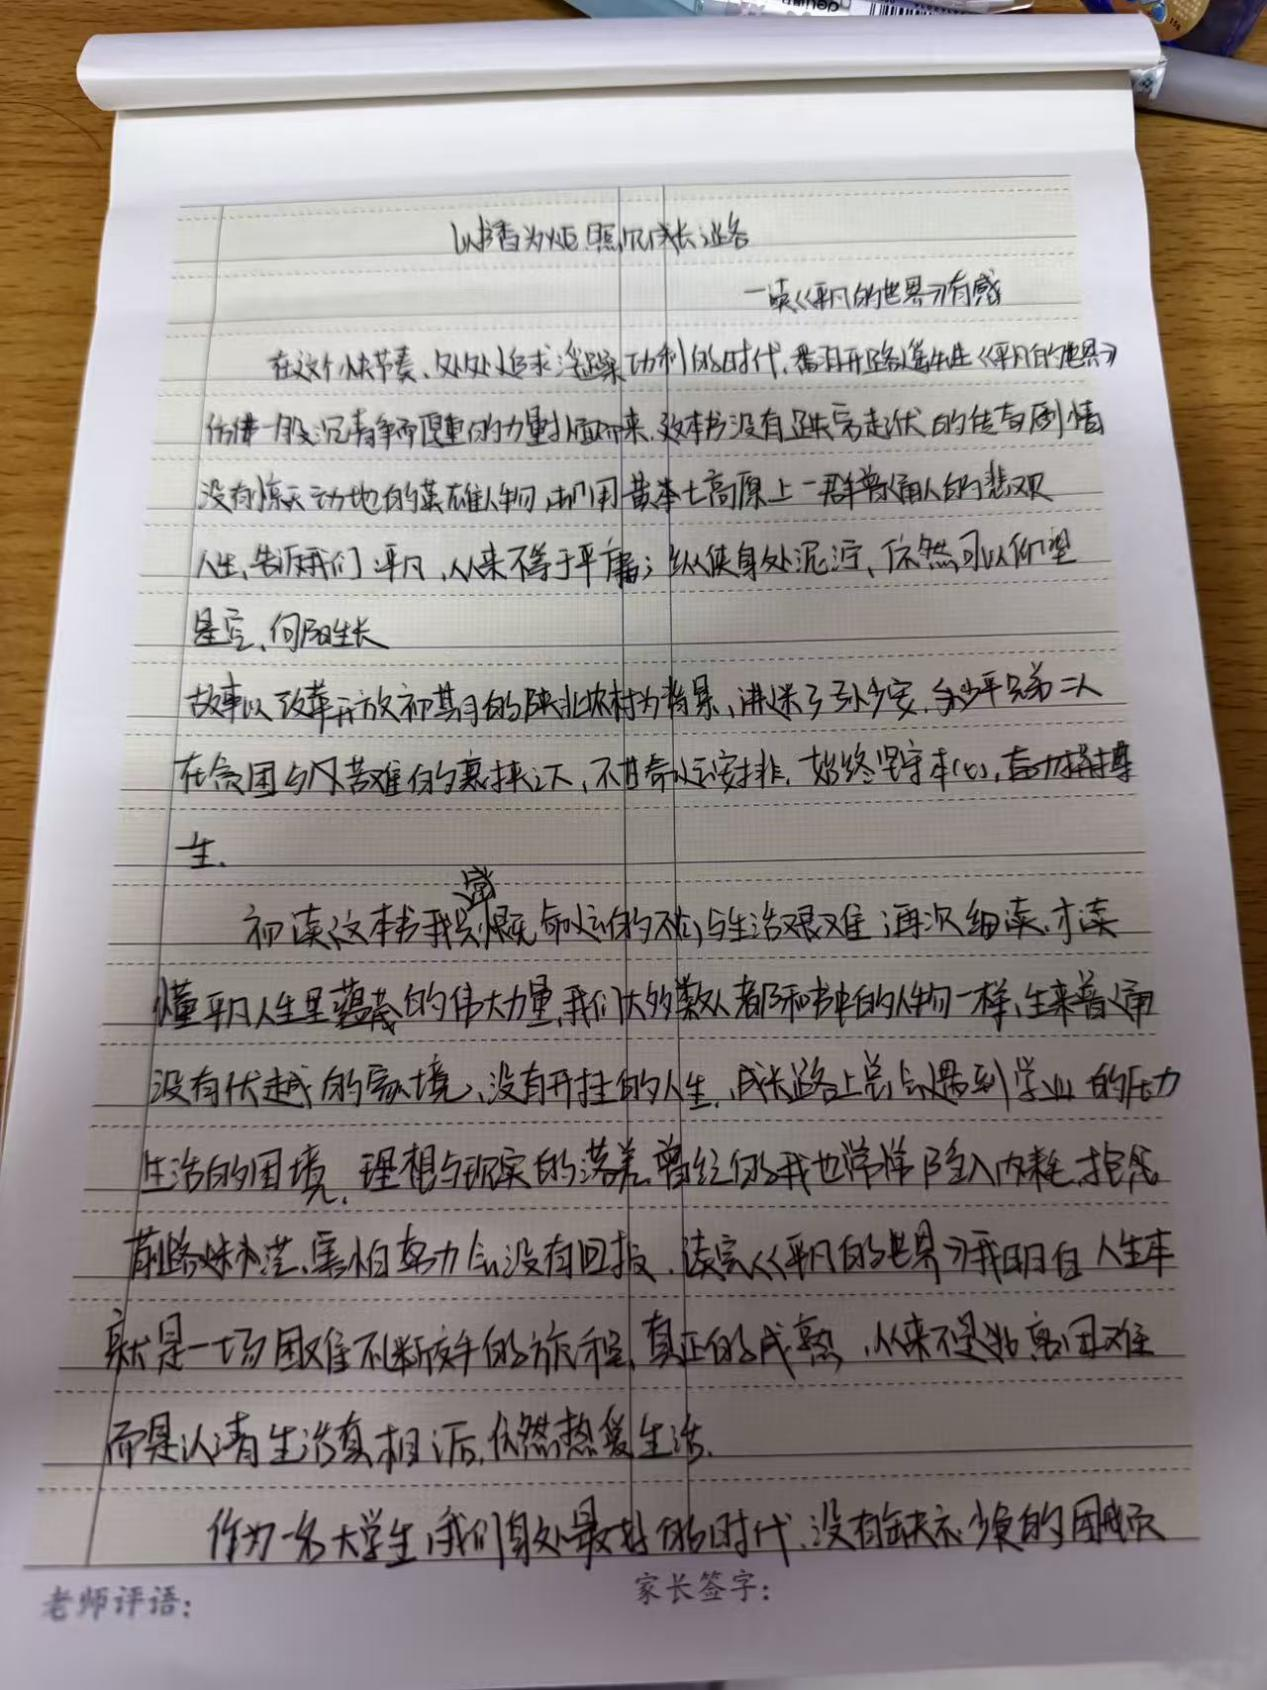 以书香为炬,照亮成长之路
一读《平凡的世界》有感
在这个快节奏、处处追求浮躁功利的时代,翻开路遥先生《平凡的世界》
仿佛一股沉静而厚重的力量扑面而来,这本书没有跌宕起伏的传奇剧情
没有惊天动地的英雄人物,却用黄土高原上一群普通人的悲欢
人生,告诉我们:平凡,从来不等于平庸;纵使身处泥泞、依然可以仰望
星空、向阳生长
故事以改革开放初期的陕北农村为背景、讲述了孙少安、孙少平兄弟二人
在贫困与苦难的裹挟之下、不甘命运安排,始终坚守本心,奋力拼搏
一生.
初读这本书我只感慨命运的不公与生活艰难;再次细读,才读
懂平凡人生里蕴藏的伟大力量,我们大多数人都和书中的人物一样、生来普通
没有优越的家境、没有开挂的人生.成长路上总会遇到学业的压力
生活的困境、理想与现实的落差,曾经的我也常常陷入内耗,抱怨
前路迷茫、害怕努力会没有回报.读完《平凡的世界》我明白人生本
就是一场困难不断的旅程,真正的成熟,从来不是远离困难
而是认清生活真相后,依然热爱生活.
作为一名大学生,我们身处最好的时代、没有缺衣少食的困
老师评语:
家长签字: